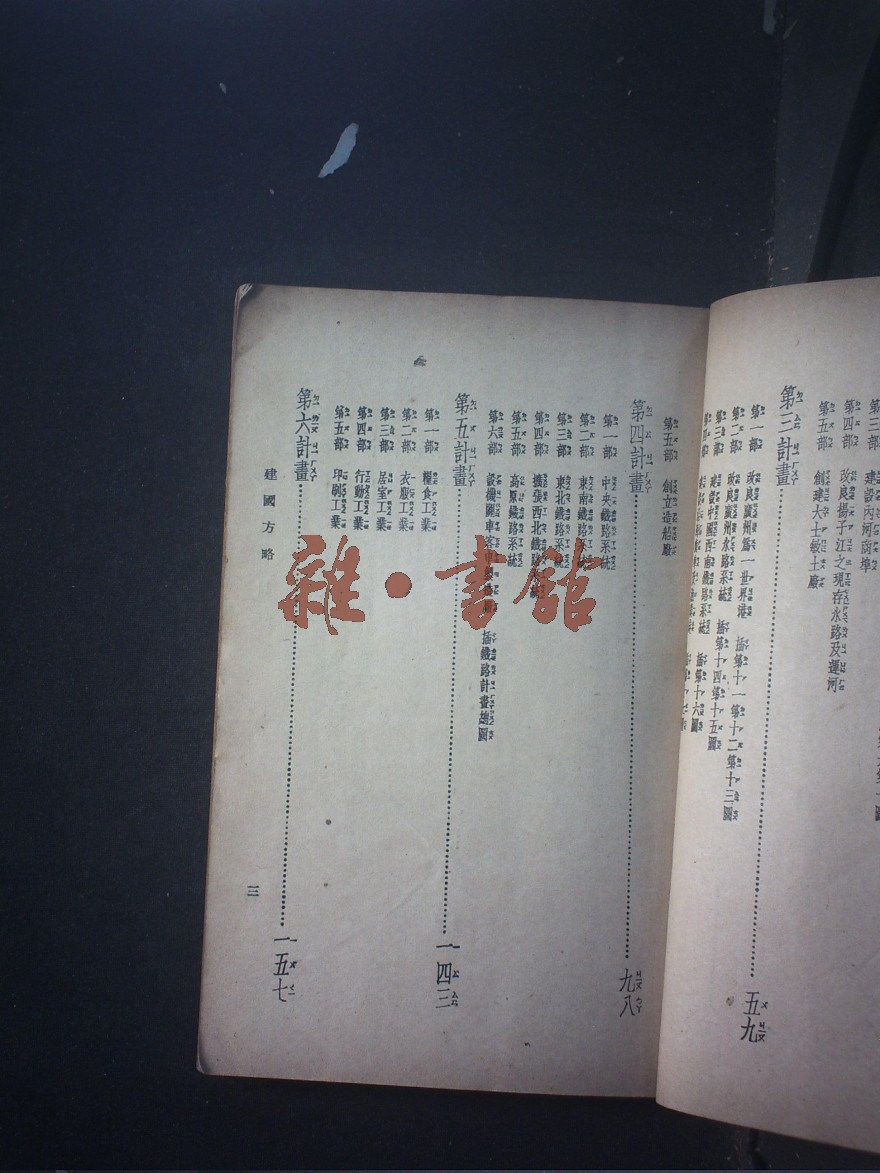 第三部　建設內河商埠
第四部　改良揚子江之現存水路及運河
第五部　創建大士敏土廠
第三計畫……五九
第一部　改良廣州為一世界港　插第十一第十二第十三圖
第二部　改良廣州水路系統　插第十四第十五圖
第三部　建設中國西南鐵路系統　插第十六圖
第四部
第五部　創立造船廠
第四計畫……九八
第一部　中央鐵路系統
第二部　東南鐵路系統
第三部　東北鐵路系統
第四部　擴張西北鐵路系統
第五部　高原鐵路系統
第六部　設機關車客　插鐵路計畫總圖
第五計畫……一四三
第一部　糧食工業
第二部　衣服工業
第三部　居室工業
第四部　行動工業
第五部　印刷工業
第六計畫……一五七
建國方略
三
雜·書館